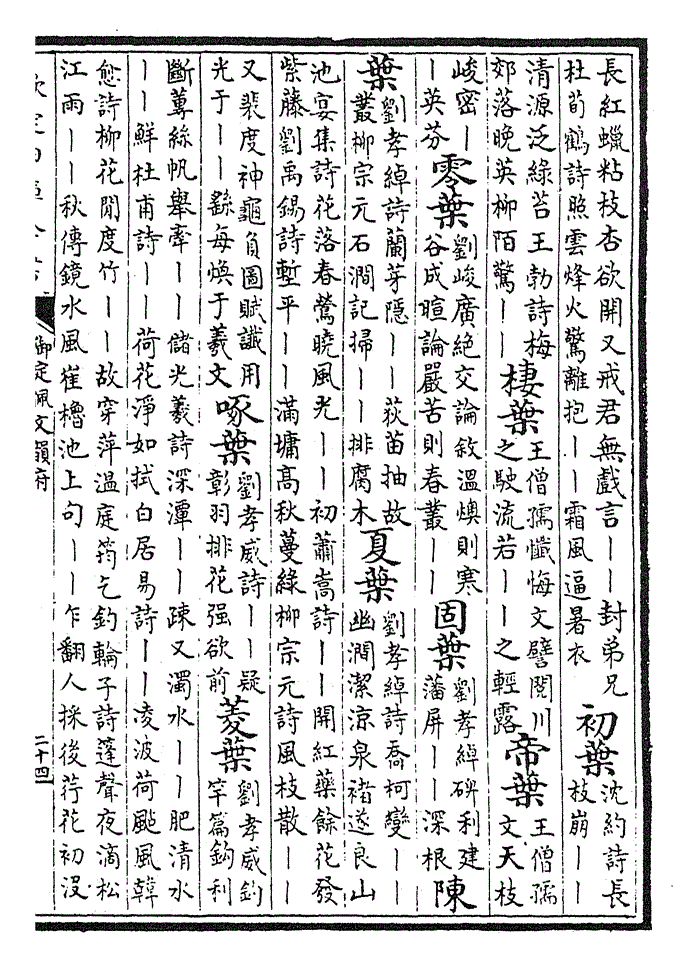 長紅蠟粘枝杏欲開又戒君無戲言丨丨封弟兄
杜荀鶴詩照雲烽火驚離抱丨丨霜風逼暑衣
初葉
沈約詩長
枝崩丨丨
清源泛綠苔王勃詩梅
郊落晚英柳陌驚丨丨
棲葉
王僧孺懺悔文譬閱川
之駛流若丨丨之輕露
帝葉
王僧孺
文天枝
峻密丨
丨英芬
零葉
劉峻廣絶交論敘溫燠則寒
谷成暄論嚴苦則春叢丨丨
固葉
劉孝綽碑利建
藩屏丨丨深根
陳
葉
劉孝綽詩蘭芽隱丨丨荻苗抽故
叢柳宗元石澗記掃丨丨排腐木
夏葉
劉孝綽詩喬柯變丨丨
幽澗潔涼泉褚遂良山
池宴集詩花落春鶯曉風光丨丨初蕭嵩詩丨丨開紅藥餘花發
紫藤劉禹錫詩塹平丨丨滿墉高秋蔓綠柳宗元詩風枝散丨丨
又裴度神龜負圖賦讖用
光于丨丨繇每煥于羲文
啄葉
劉孝威詩丨丨疑
彰羽排花强欲前
菱葉
劉孝威釣
竿篇鉤利
斷蓴絲帆舉牽丨丨儲光羲詩深潭丨丨疎又濁水丨丨肥清水
丨丨鮮杜甫詩丨丨荷花淨如拭白居易詩丨丨凌波荷颭風韓
愈詩柳花閒度竹丨丨故穿萍溫庭筠乞釣輪子詩篷聲夜滴松
江雨丨丨秋傳鏡水風崔櫓池上句丨丨乍翻人採後荇花初沒
欽定四庫全書
御定佩文韻府
二十四